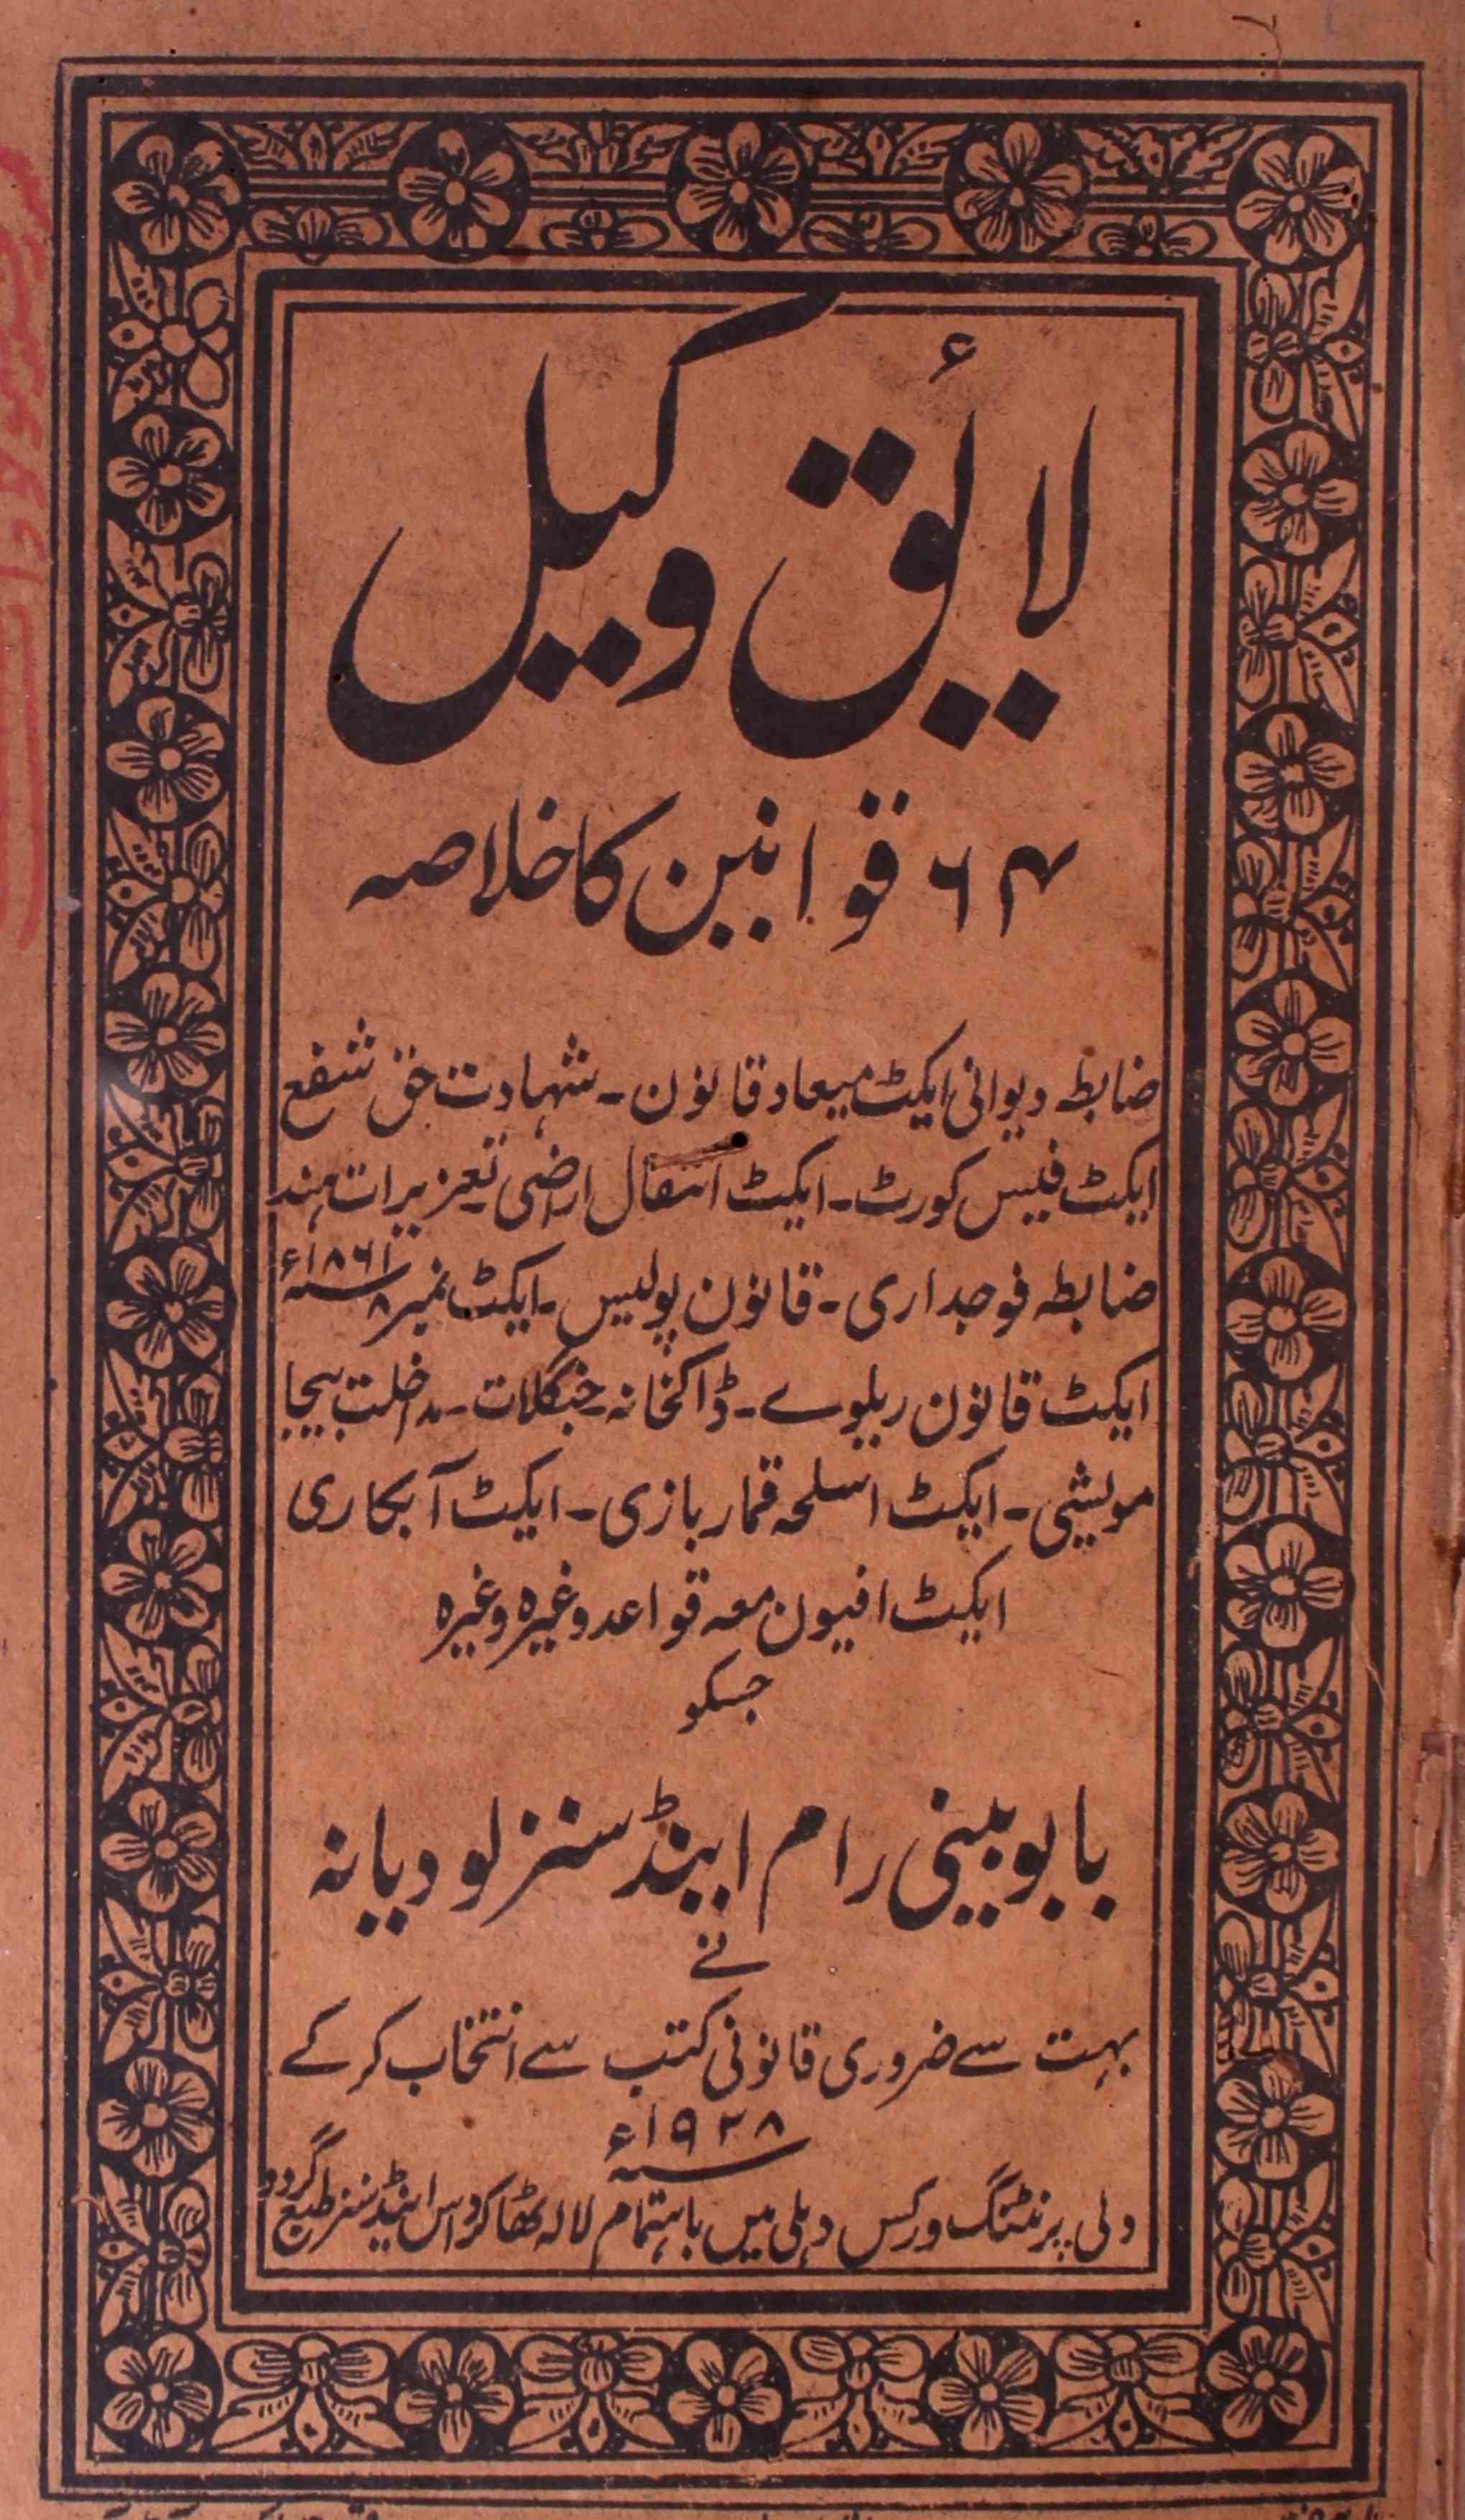 لائق وکیل
۶۴ قوانین کا خلاصہ
ضابطہ دیوانی ایکٹ میعاد قانون - شہادت حق شفع
ایکٹ فیس کورٹ - ایکٹ انتقال اراضی تعزیرات ہند
ضابطہ فوجداری - قانون پولیس - ایکٹ نمبر ۸ سنہ ۱۸۶۱ء
ایکٹ قانون ریلوے - ڈاکخانہ جنگلات - مداخلت بیجا
مویشی - ایکٹ اسلحہ قمار بازی - ایکٹ آبکاری
ایکٹ افیون معہ قواعد وغیرہ وغیرہ
جسکو
بابو بینی رام اینڈ سنز لودیانہ
نے
بہت سے ضروری قانونی کتب سے انتخاب کر کے
سنہ ۱۹۲۸ء
دلی پرنٹنگ ورکس دہلی میں باہتمام لالہ ٹھاکر داس اینڈ سنز طبع